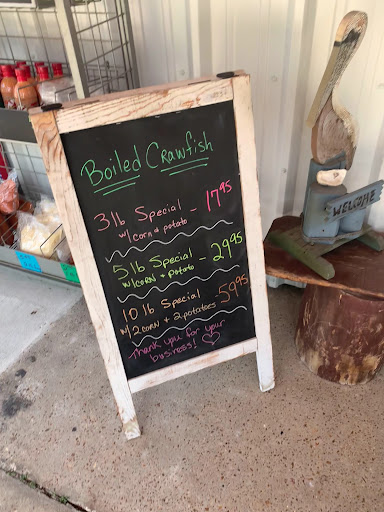 Boiled Crawfish
3lb Special - 17.95
w/ corn & potato
5lb Special - 29.95
w/ corn + potato
10 lb Special - 59.95
w/ 2 corn + 2 potatoes
Thank you for your
business! ♡
WELCOME